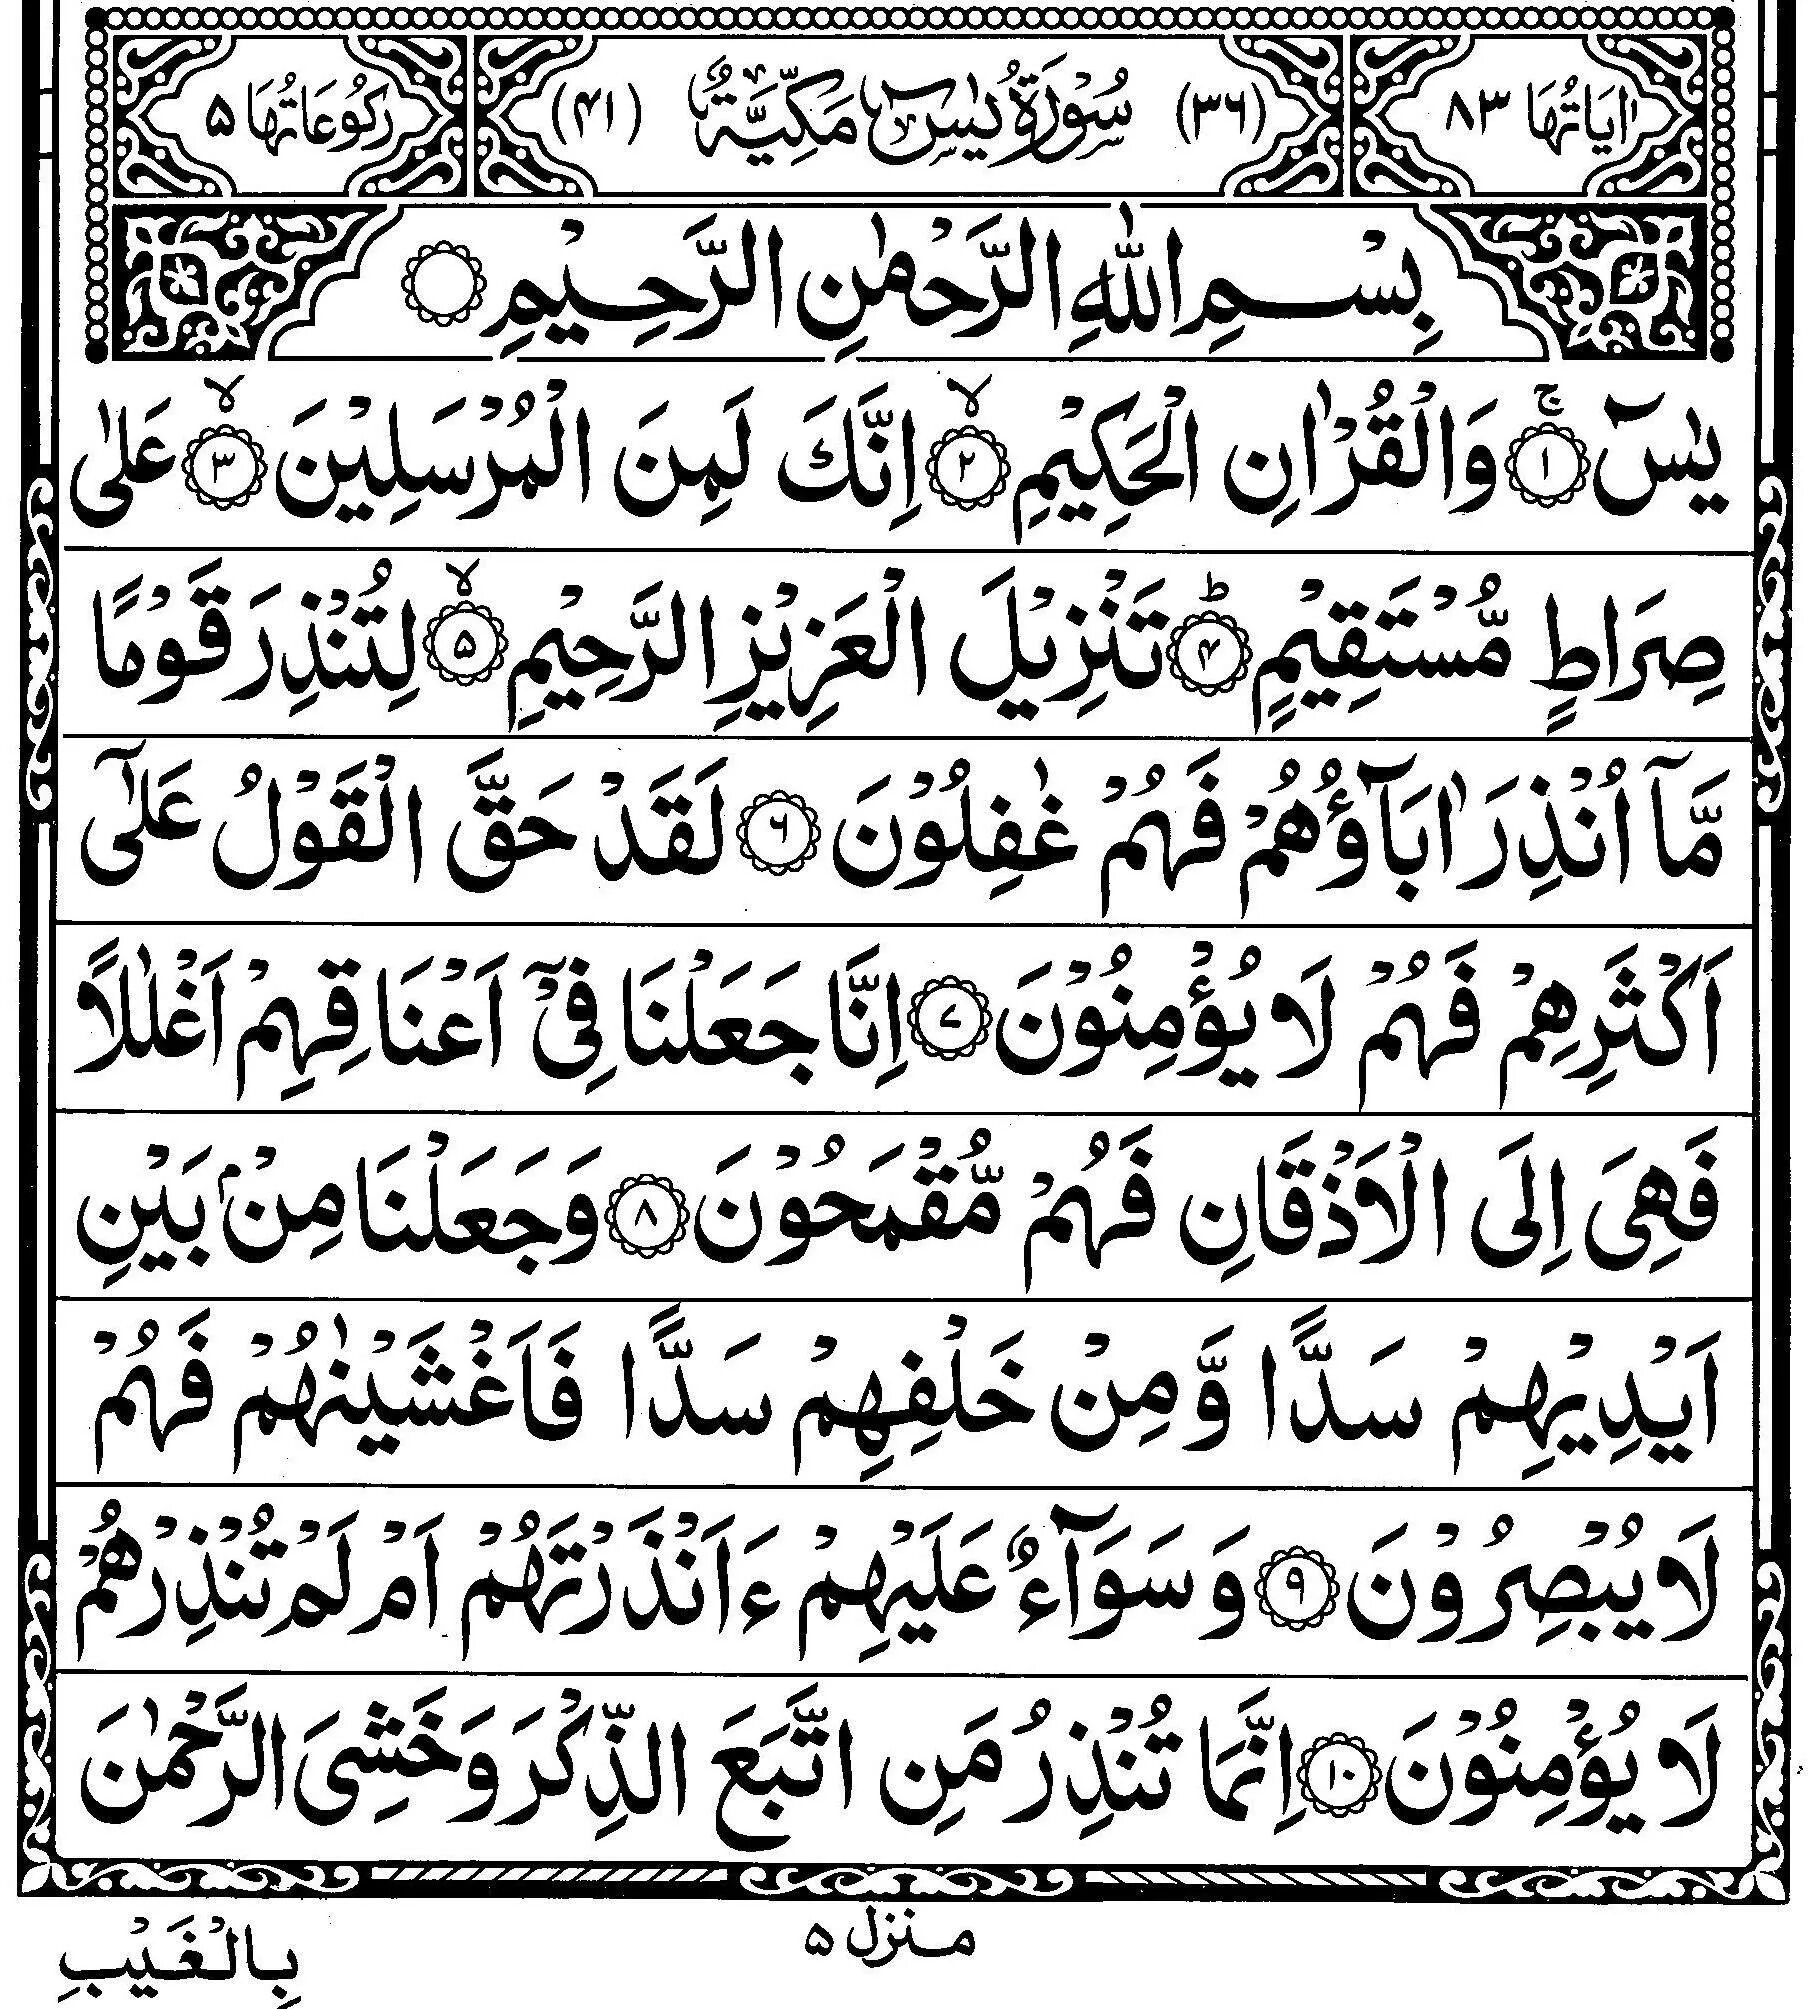 اٰيَاتُهَا ٨٣ (٣٦) سُوْرَةُ يٰسٓ مَكِّيَّةٌ (٤١) رُكُوْعَاتُهَا ٥
بِسْمِ اللّٰهِ الرَّحْمٰنِ الرَّحِيْمِ
يٰسٓ ۚ﴿١﴾ وَالْقُرْاٰنِ الْحَكِيْمِ ۙ﴿٢﴾ اِنَّكَ لَمِنَ الْمُرْسَلِيْنَ ۙ﴿٣﴾ عَلٰى
صِرَاطٍ مُّسْتَقِيْمٍ ؕ﴿٤﴾ تَنْزِيْلَ الْعَزِيْزِ الرَّحِيْمِ ۙ﴿٥﴾ لِتُنْذِرَ قَوْمًا
مَّآ اُنْذِرَ اٰبَآؤُهُمْ فَهُمْ غٰفِلُوْنَ ﴿٦﴾ لَقَدْ حَقَّ الْقَوْلُ عَلٰٓى
اَكْثَرِهِمْ فَهُمْ لَا يُؤْمِنُوْنَ ﴿٧﴾ اِنَّا جَعَلْنَا فِىْٓ اَعْنَاقِهِمْ اَغْلٰلًا
فَهِىَ اِلَى الْاَذْقَانِ فَهُمْ مُّقْمَحُوْنَ ﴿٨﴾ وَجَعَلْنَا مِنْۢ بَيْنِ
اَيْدِيْهِمْ سَدًّا وَّمِنْ خَلْفِهِمْ سَدًّا فَاَغْشَيْنٰهُمْ فَهُمْ
لَا يُبْصِرُوْنَ ﴿٩﴾ وَسَوَآءٌ عَلَيْهِمْ ءَاَنْذَرْتَهُمْ اَمْ لَمْ تُنْذِرْهُمْ
لَا يُؤْمِنُوْنَ ﴿١٠﴾ اِنَّمَا تُنْذِرُ مَنِ اتَّبَعَ الذِّكْرَ وَخَشِىَ الرَّحْمٰنَ
منزل ٥
بِالْغَيْبِ